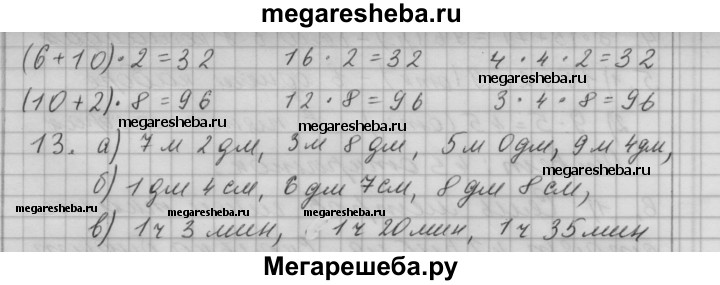 megaresheba.ru
(6+10)·2=32 16·2=32 4·4·2=32
megaresheba.ru
(10+2)·8=96 12·8=96 3·4·8=96
megaresheba.ru megaresheba.ru megaresheba.ru
13. а) 7 м 2 дм, 3 м 8 дм, 5 м 0 дм, 9 м 4 дм,
б) 1 дм 4 см, 6 дм 7 см, 8 дм 8 см,
megaresheba.ru megaresheba.ru megaresheba.ru
в) 1 ч 3 мин, 1 ч 20 мин, 1 ч 35 мин
Мегарешеба.ру